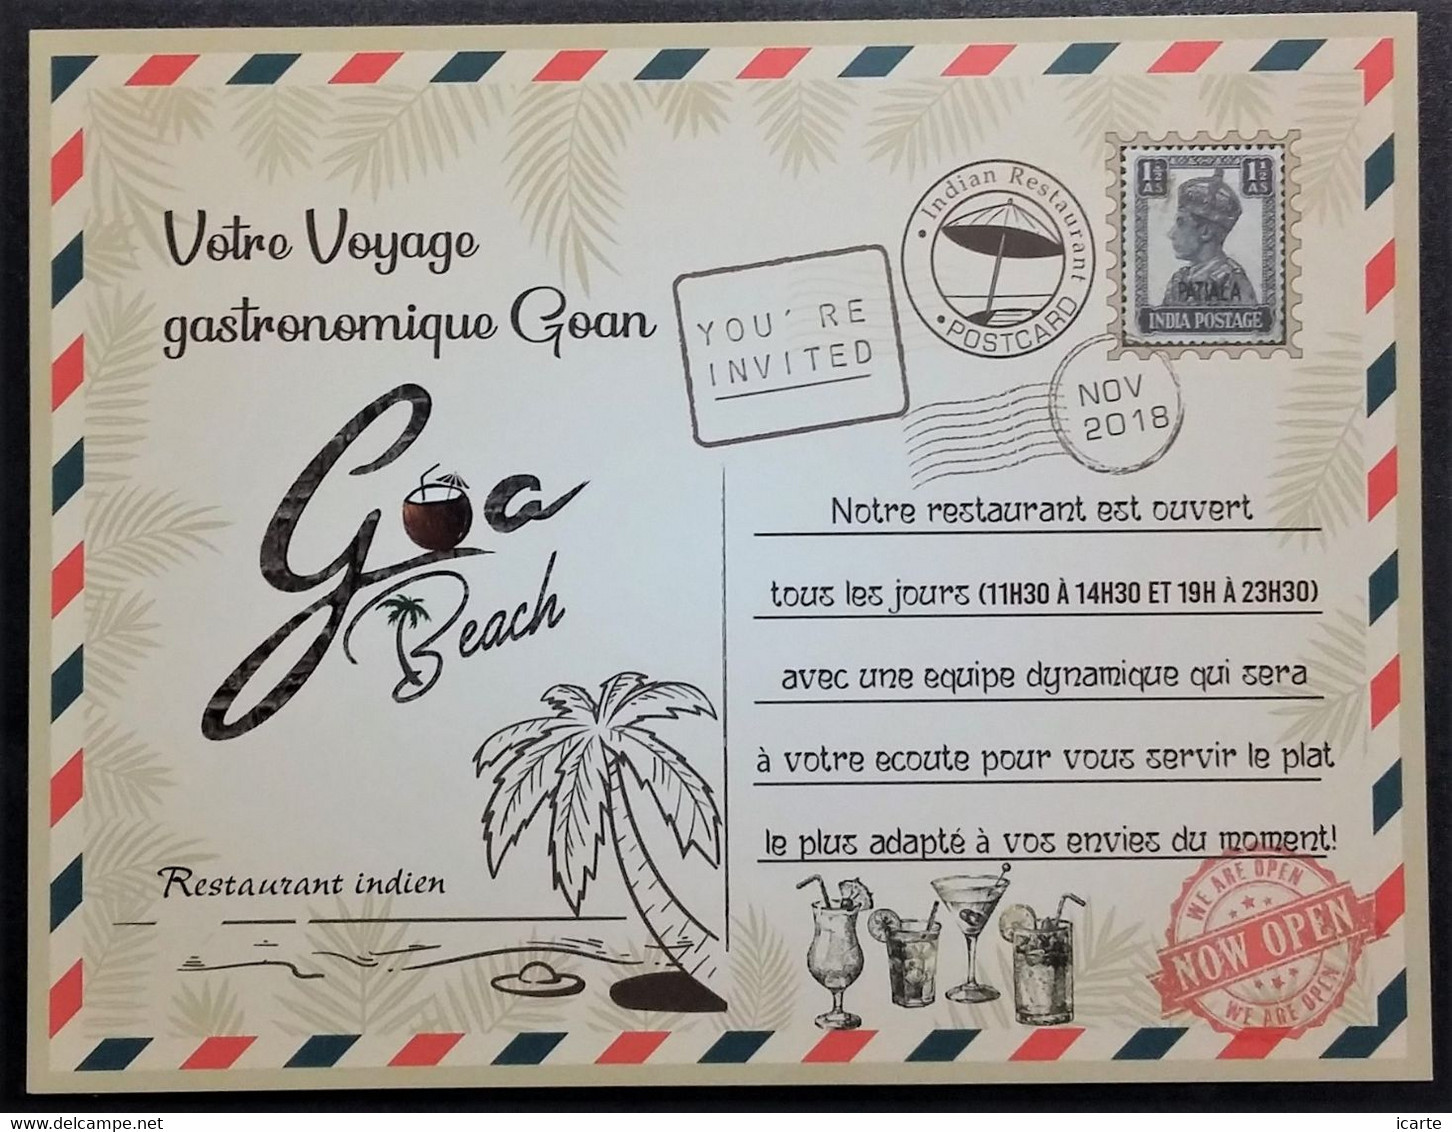 Votre Voyage
gastronomique Goan
YOU'RE
INVITED
Indian Restaurant
POSTCARD
1½ AS 1½ AS
PATIALA
INDIA POSTAGE
NOV
2018
Goa
Beach
Restaurant indien
Notre restaurant est ouvert
tous les jours (11H30 À 14H30 ET 19H À 23H30)
avec une equipe dynamique qui sera
à votre ecoute pour vous servir le plat
le plus adapté à vos envies du moment!
WE ARE OPEN
NOW OPEN
WE ARE OPEN
delcampe.net
icarte